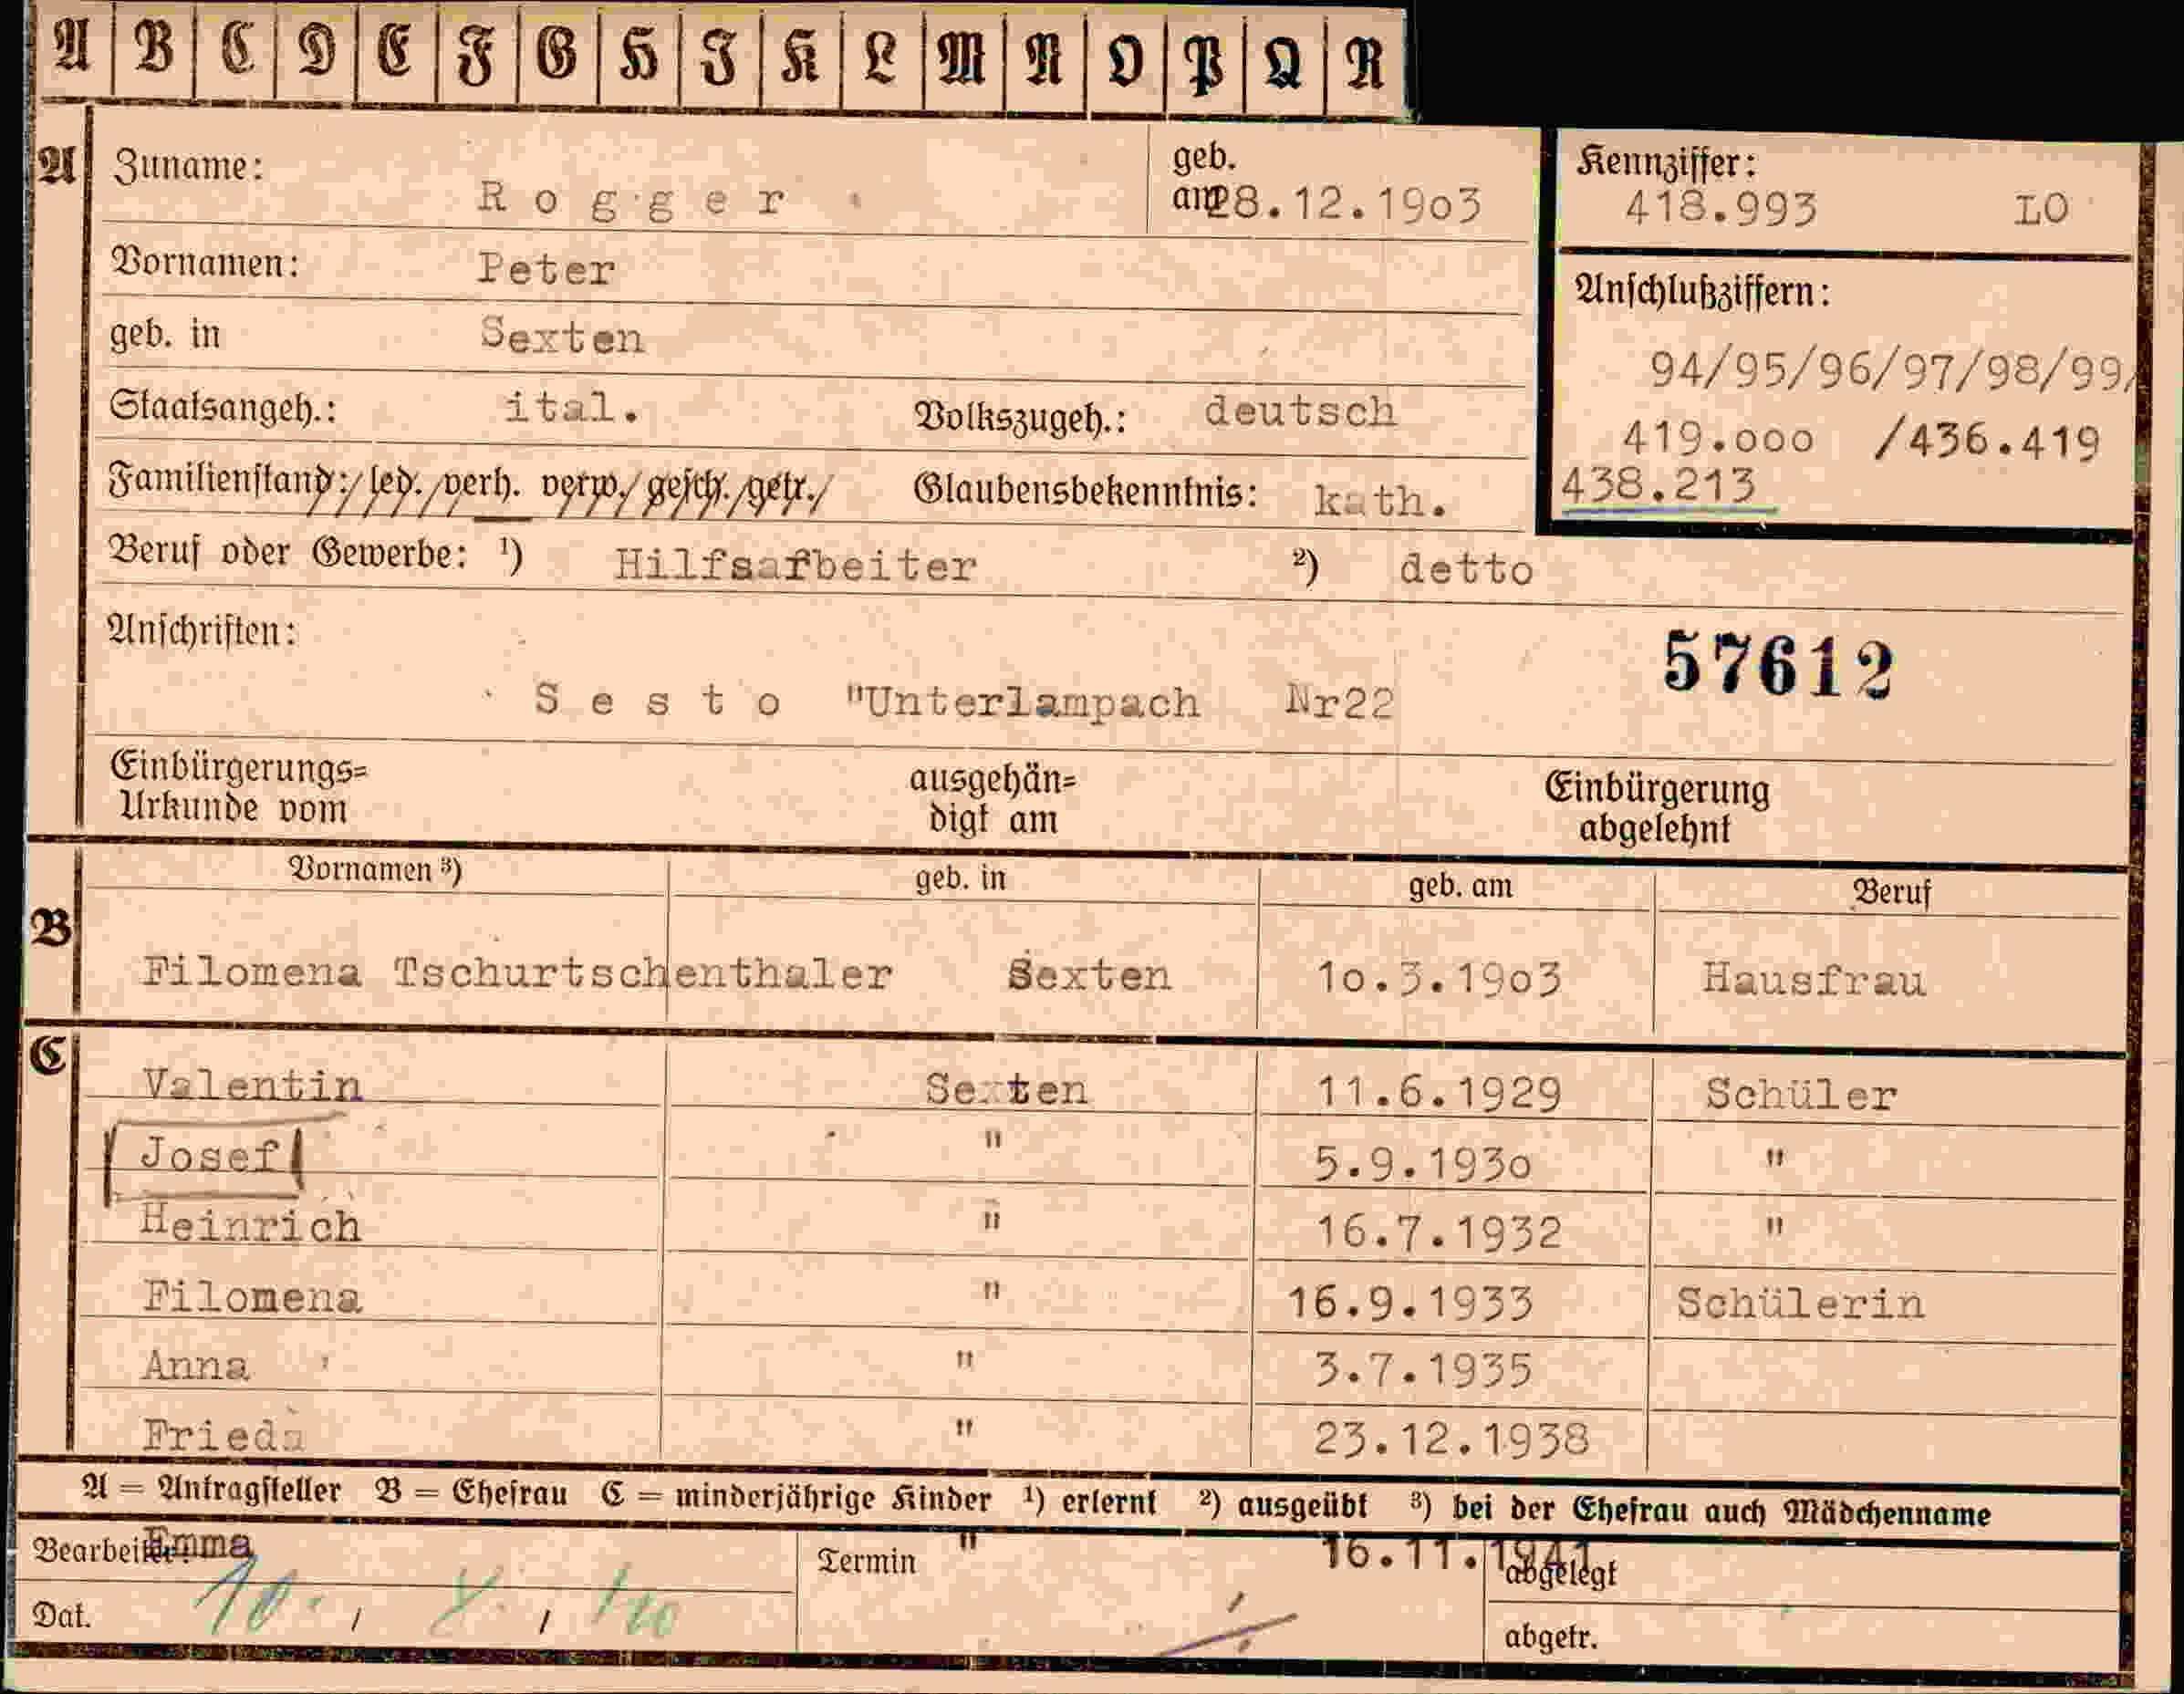 A B C D E F G H I K L M N O P Q R
A Zuname: Rogger geb. am 28.12.1903
Kennziffer: 418.993 LO
Vornamen: Peter
geb. in Sexten
Anschlußziffern:
94/95/96/97/98/99/
419.000 /436.419
438.213
Staatsangeh.: ital. Volkszugeh.: deutsch
Familienstand: led. verh. verw. gesch. getr. Glaubensbekenntnis: kath.
Beruf oder Gewerbe: ¹) Hilfsarbeiter ²) detto
Anschriften:
57612
Sesto "Unterlampach Nr22
Einbürgerungs=
Urkunde vom
ausgehän=
digt am
Einbürgerung
abgelehnt
Vornamen ³) geb. in geb. am Beruf
B
Filomena Tschurtschenthaler Sexten 10.3.1903 Hausfrau
C
Valentin Sexten 11.6.1929 Schüler
Josef " 5.9.1930 "
Heinrich " 16.7.1932 "
Filomena " 16.9.1933 Schülerin
Anna " 3.7.1935
Frieda " 23.12.1938
A = Antragsteller B = Ehefrau C = minderjährige Kinder ¹) erlernt ²) ausgeübt ³) bei der Ehefrau auch Mädchenname
Bearbeiter: Emma Termin " 16.11.1941 abgelegt
Dat. 10. / / abgetr.